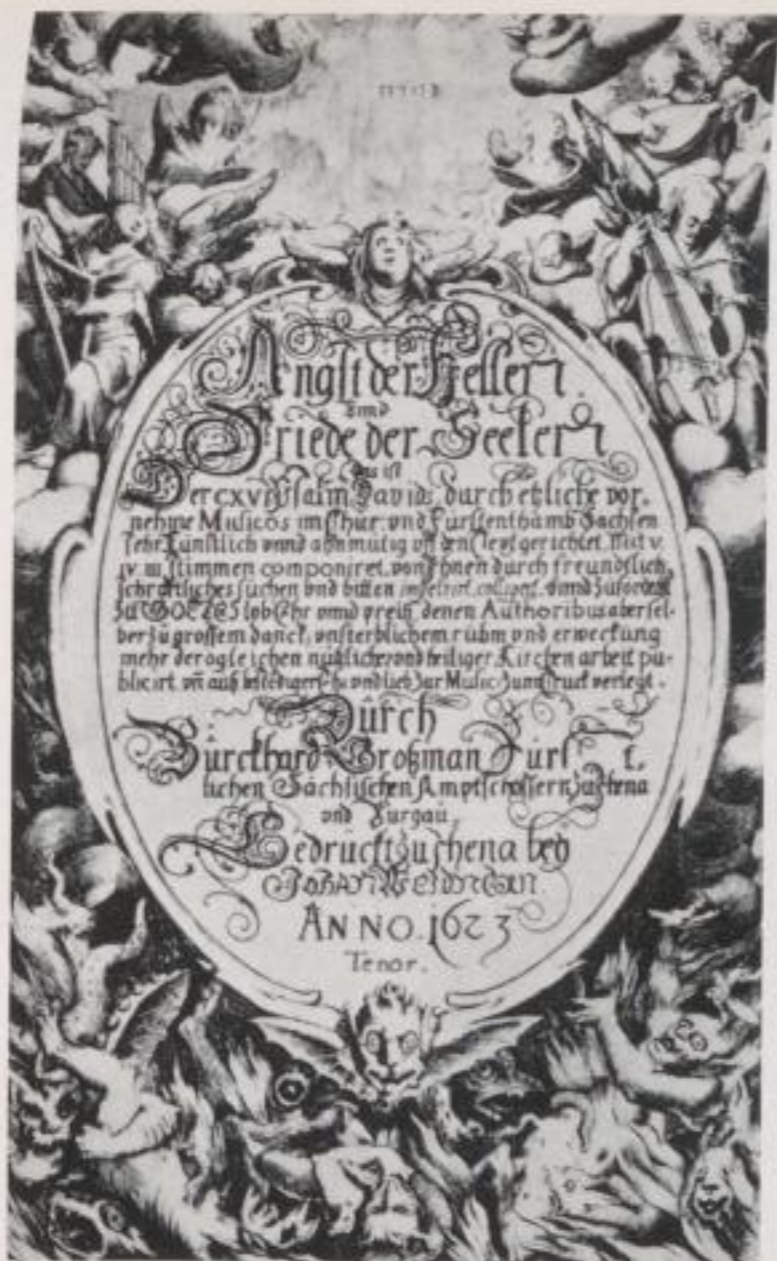 Angst der Hellen
vnnd
Friede der Seelen
das ist
Der CXVI Psalm Davids durch etliche vor-
nehme Musicos im Chur vnd Furstenthumb Sachsen
sehr künstlich vnnd anmutig vff den Text gerichtet Mit V.
IV. III. stimmen componiret, von ihnen durch freundlich,
schrifftliches suchen vnd bitten colligirt, vnnd zuforderst
Zu GOTTES lob Ehr vnnd preiß, denen Authoribus aber sel-
ber zu grossem danck, vnsterblichem ruhm vnd erweckung
mehr dergleichen nützlicher vnd heiliger Kirchen arbeit pu-
blicirt, vñ auß vnd lieb zur Music zum druck verlegt.
Dürch
Bürckhard Großman Fürst-
lichen Sächsischen Amptschössern zu Jhena
vnd Burgau
Gedruckt zu Jhena bey
Johan Weidnern.
ANNO. 1623
Tenor.